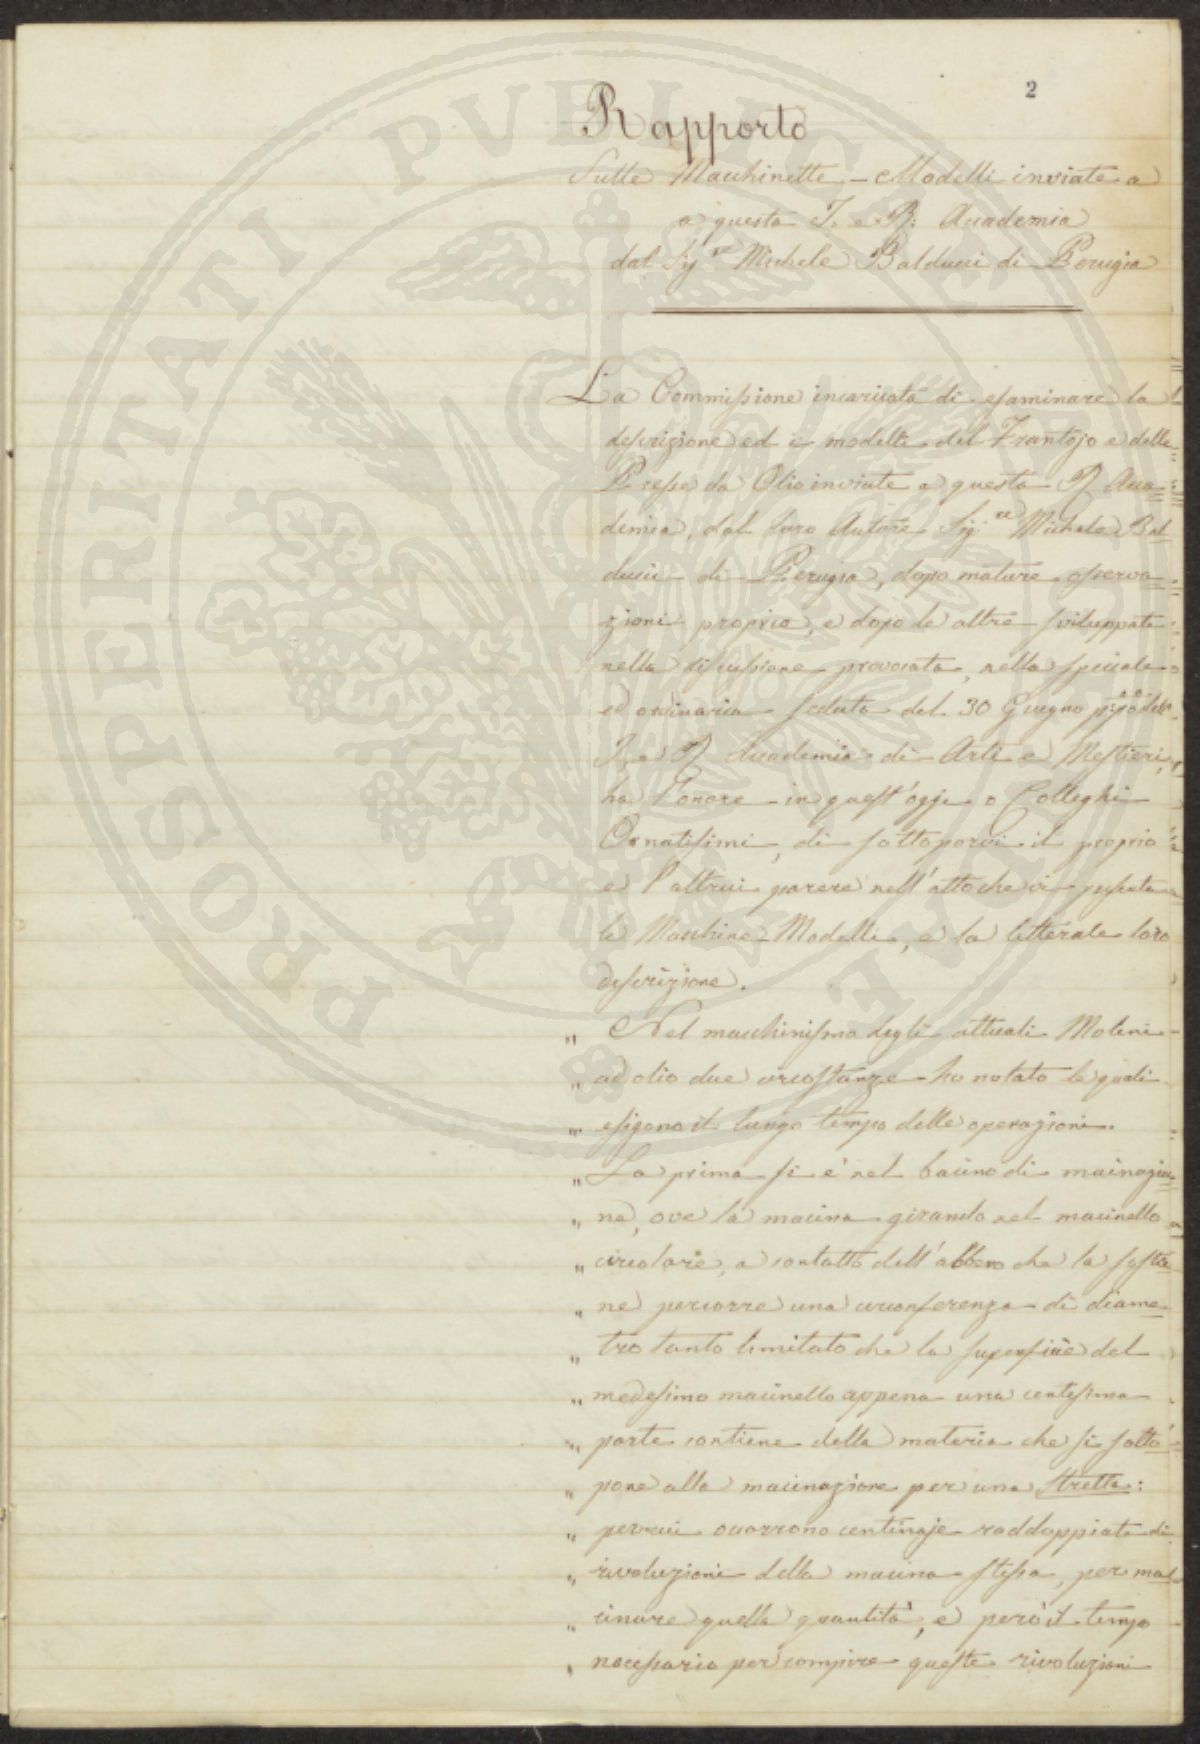 2
Rapporto
Sulle Macchinette – Modelli inviate a
a questa I. e R. Accademia
dal Sig.re Michele Balducci di Perugia
La Commissione incaricata di esaminare la
descrizione ed i modelli del Frantojo e delle
Presse da Olio inviate a questa R. Acca=
demia, dal loro Autore Sig.re Michele Bal=
ducci di Perugia, dopo mature osserva=
zioni proprie, e dopo le altre sviluppate
nella discussione provocata, nella speciale
ed ordinaria seduta del 30 Giugno pspo dell'
I. e R. Accademia di Arti e Mestieri,
ha l'onore in quest'oggi o Colleghi
Ornatissimi, di sottoporvi il proprio
e l'altrui parere nell'atto che vi presenta
le Macchine-Modelli, e la letterale loro
descrizione.
" Nel macchinismo degli attuali Moleni
" ad olio due circostanze ho notato le quali
" esigono il lungo tempo delle operazioni.
" La prima si è nel bacino di macinazio=
" ne, ove la macina girando nel macinello
" circolare, a contatto dell'albero che la sostie=
" ne percorre una circonferenza di diame=
" tro tanto limitato che la superficie del
" medesimo macinello appena una centesima
" parte contiene della materia che si sotto=
" pone alla macinazione per una stretta:
" percui occorrono centinaje raddoppiate di
" rivoluzioni della macina stessa, per ma=
" cinare quella quantità, e però il tempo
" necessario per compire queste rivoluzioni
PROSPERITATI PVBLICAE AVGENDAE